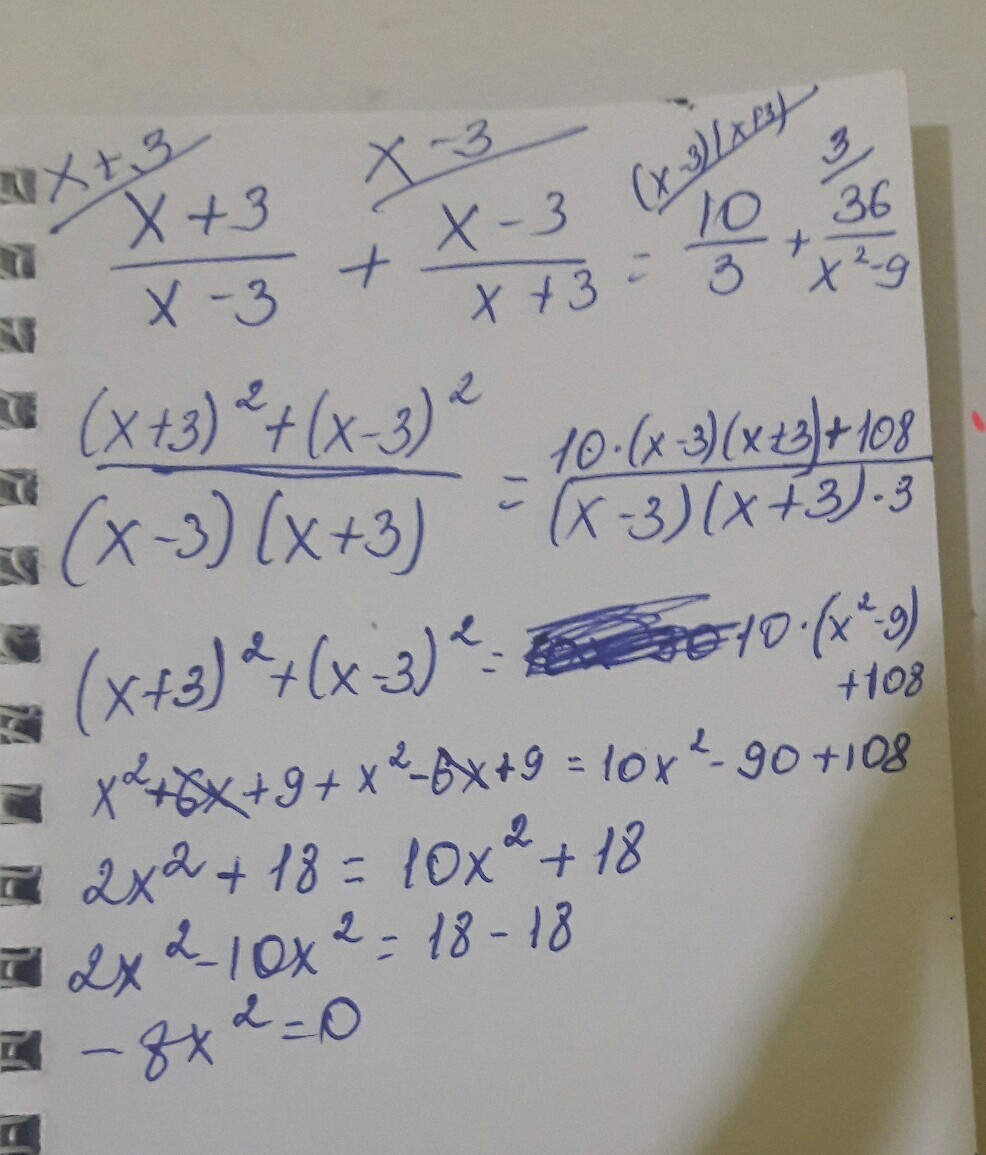 x+3 x-3 (x-3)(x+3) 3
(x+3)/(x-3) + (x-3)/(x+3) = 10/3 + 36/(x²-9)
((x+3)²+(x-3)²)/((x-3)(x+3)) = (10·(x-3)(x+3)+108)/((x-3)(x+3)·3)
(x+3)²+(x-3)²= 10·(x²-9)
+108
x²+6x+9+x²-6x+9=10x²-90+108
2x²+18=10x²+18
2x²-10x²=18-18
-8x²=0